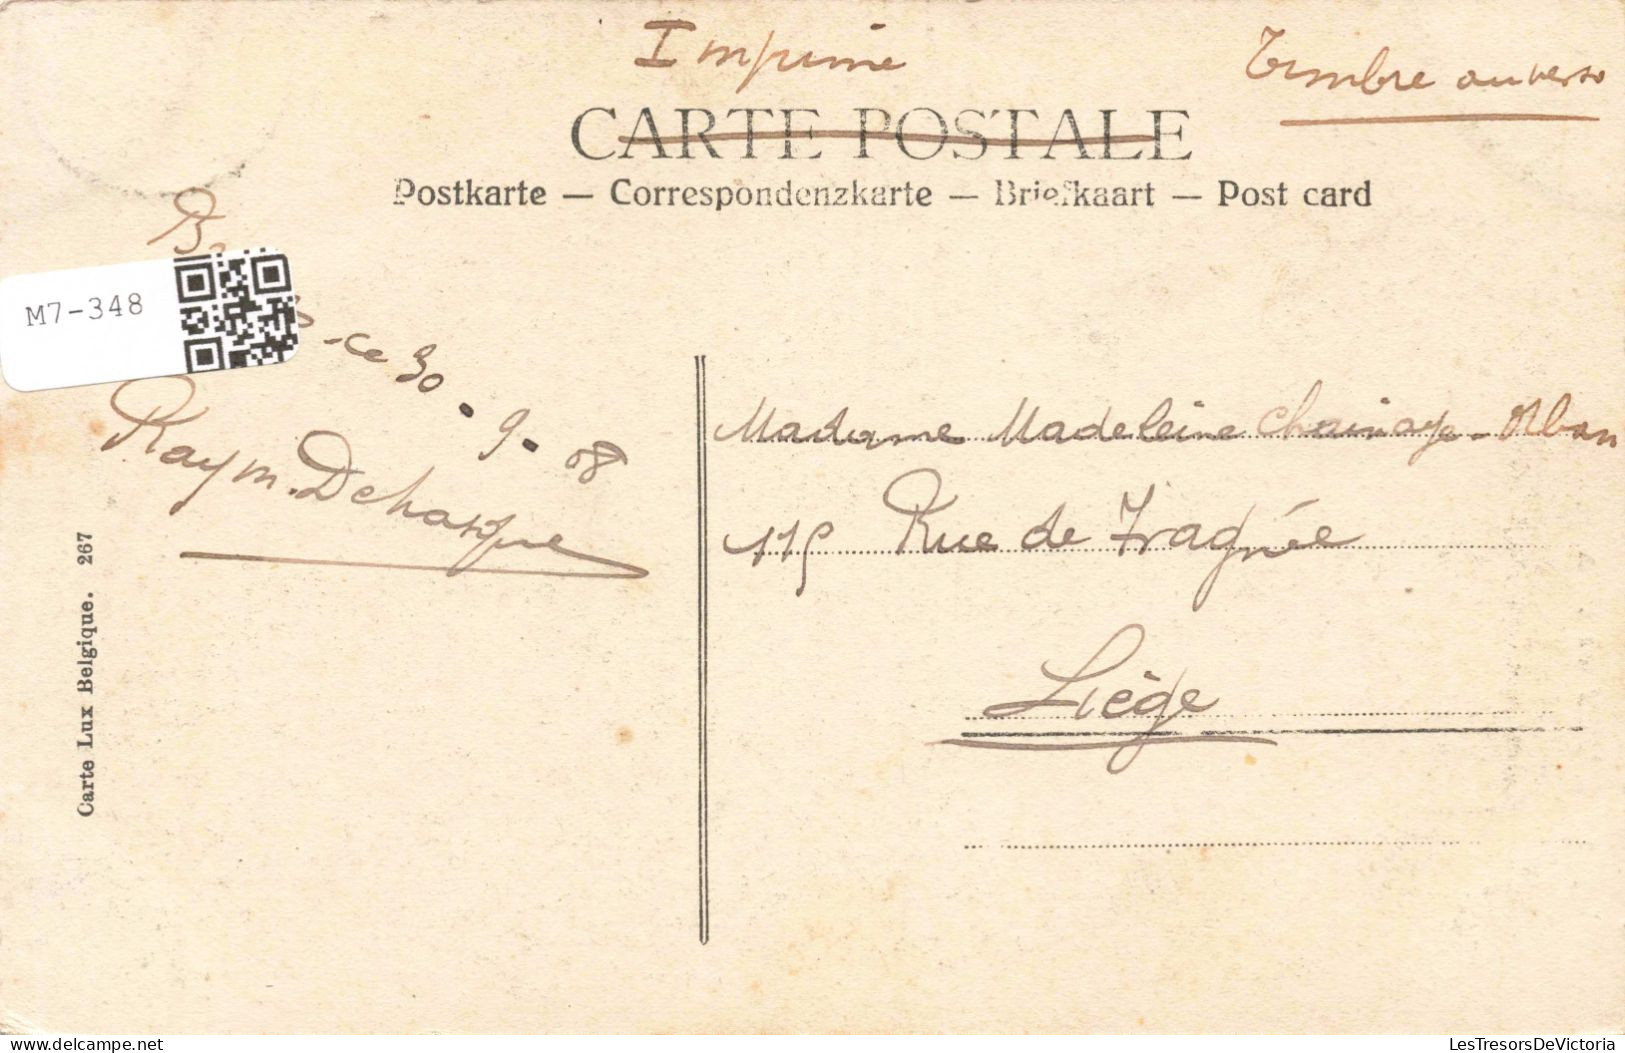 Imprimé
Timbre au verso
CARTE POSTALE
Postkarte — Correspondenzkarte — Briefkaart — Post card
M7-348
-ce 30-9-08
Raym. Deharque
Madame Madeleine Chainaye-Alban
115 Rue de Fragnée
Liège
Carte Lux Belgique. 267
delcampe.net
LesTresorsDeVictoria